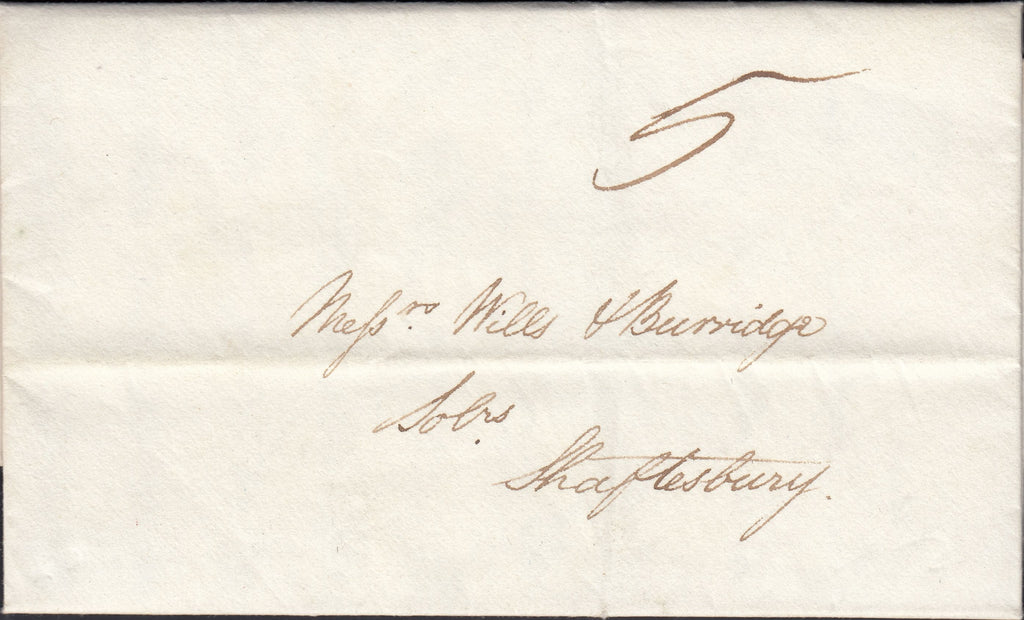 5
Messrs. Wills & Burridge
Solrs.
Shaftesbury.